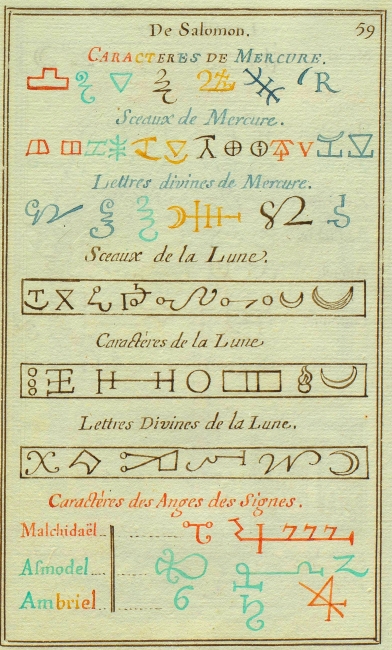 De Salomon. 59
CARACTERES DE MERCURE.
Sceaux de Mercure.
Lettres divines de Mercure.
Sceaux de la Lune.
Caractéres de la Lune
Lettres Divines de la Lune.
Caractéres des Anges des Signes.
Malchidaël
Aſmodel
Ambriel